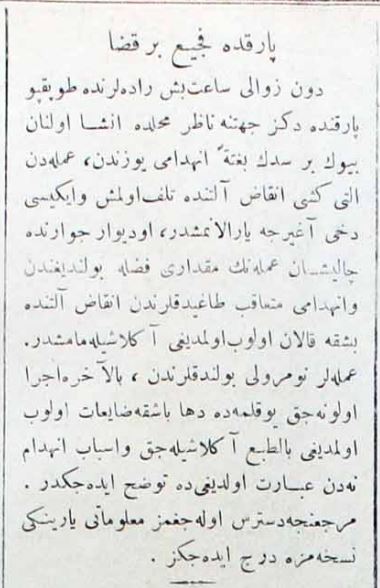 پارقده فجیع بر قضا
دون زوالی ساعت‌بش راده‌لرنده طوپقپو
پارقنده دكز جهتنه ناظر محلده انشا اولنان
بیوك بر سدك بغتةً انهدامی یوزندن، عمله‌دن
التی كشی انقاض آلتنده تلف‌اولمش وایكیسی
دخی آغیرجه یارالانمشدر، اودیوار جوارنده
چالیشان عمله‌نك مقداری فضله بولندیغندن
وانهدامی متعاقب طاغیدقلرندن انقاض آلتنده
بشقه قالان اولوب‌اولمدیغی آكلاشیله‌مامشدر.
عمله‌لر نومرولی بولندقلرندن ، بالآخره‌اجرا
اولونه‌جق یوقلمه‌ده دها باشقه‌ضایعات اولوب
اولمدیغی بالطبع آكلاشیله‌جق واسباب انهدام
نه‌دن عبارت اولدیغی‌ده توضح ایده‌جكدر .
مرجعنجه‌دسترس اوله‌جغمز معلوماتی یارینكی
نسخه‌مزه درج ایده‌جكز .